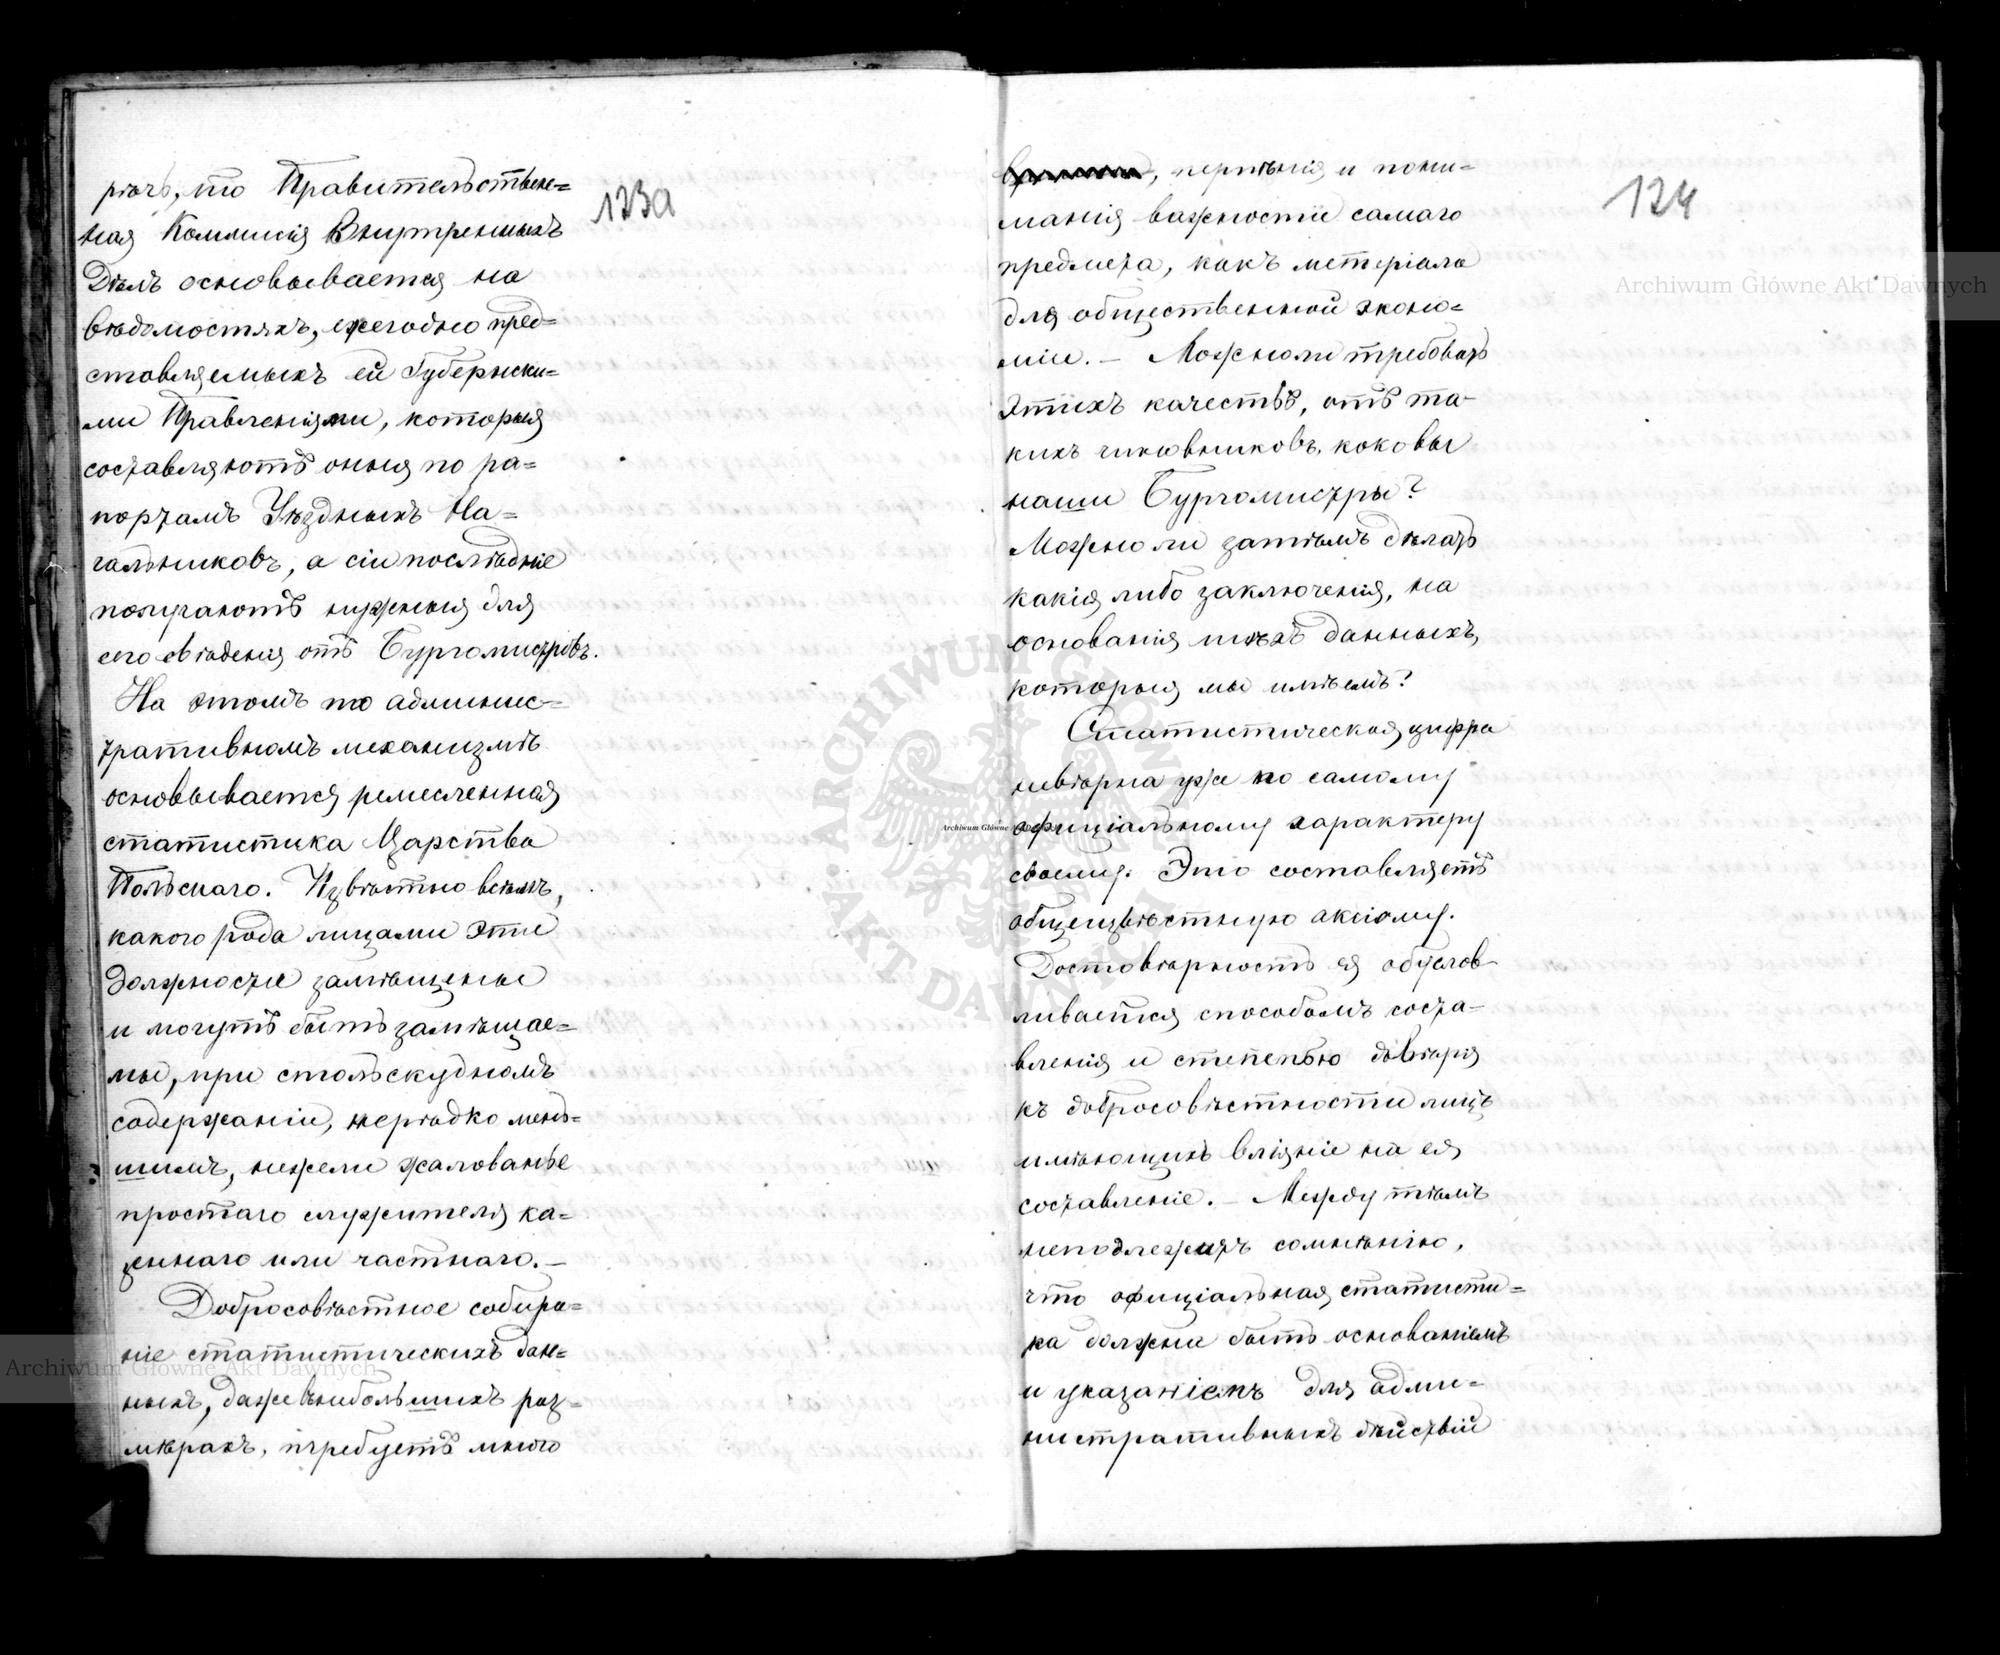 рѣчь, то Правительствен=
ная Коммисія Внутреннихъ
Дѣлъ основывается на
вѣдомостяхъ, ежегодно пред=
ставляемыхъ ей Губернски=
ми Правленіями, которыя
составляютъ оныя по ра=
портамъ Уѣздныхъ На=
чальниковъ, а сіи послѣдніе
получаютъ нужныя для
сего свѣденія отъ Бургомистровъ.
На этомъ то админис=
тративномъ механизмѣ
основывается ремесленная
статистика Царства
Польскаго. Извѣстно всѣмъ,
какого рода лицами эти
должности замѣщены
и могутъ быть замѣщае=
мы, при столь скудномъ
содержаніи, нерѣдко мень=
шимъ, нежели жалованье
простаго служителя ка=
зеннаго или частнаго. —
Добросовѣстное собира=
ніе статистическихъ дан=
ныхъ, даже въ небольшихъ раз=
мѣрахъ, требуетъ много
123a
, терпѣнія и пони=
манія важности самаго
предмета, какъ метеріала
для общественной эконо=
міи. — Можно ли требовать
этихъ качествъ, отъ та-
кихъ чиновниковъ, каковы
наши Бургомистры?
Можно ли затѣмъ дѣлать
какія либо заключенія, на
основанія тѣхъ данныхъ,
которыя мы имѣемъ?
Статистическая цифра
невѣрна уже по самому
офиціальному характеру
своему. Это составляетъ
общеизвѣстную аксіому.
Достовѣрность ея обуслов-
ливается способомъ соста-
вленія и степенью довѣрія
къ добросовѣстности лицъ
имѣющихъ вліяніе на ея
составленіе. — Между тѣмъ
неподлежитъ сомнѣнію,
что офиціальная статисти=
ка должна быть основаніемъ
и указаніемъ для адми=
нистративныхъ дѣйствій
124
Archiwum Główne Akt Dawnych
Archiwum Główne Akt Dawnych
ARCHIWUM GŁÓWNE AKT DAWNYCH